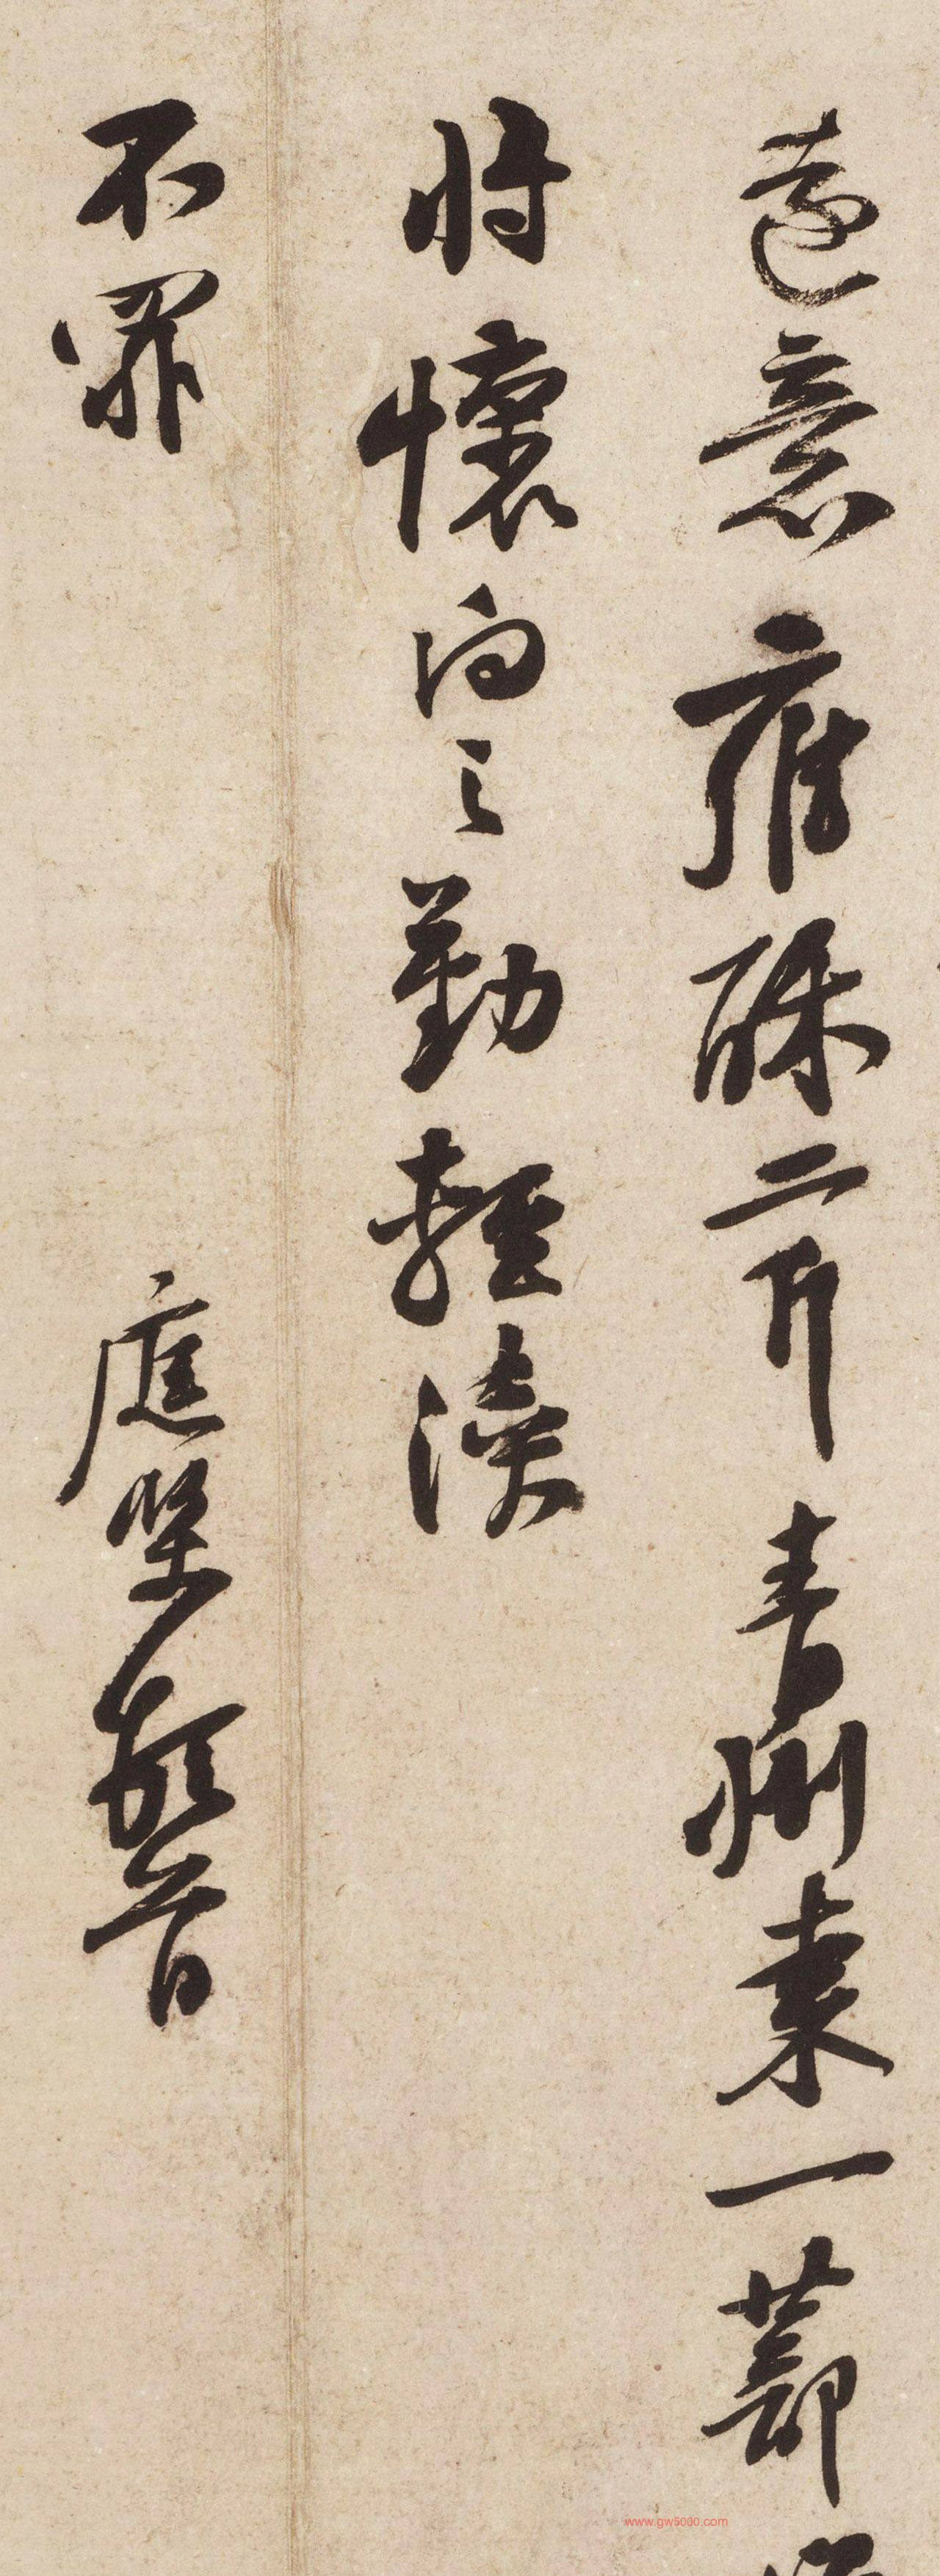 遠意雍酥二斤青州棗一蔀
將懷向之勤輕瀆
不罪 庭堅頓首
www.gw5000.com